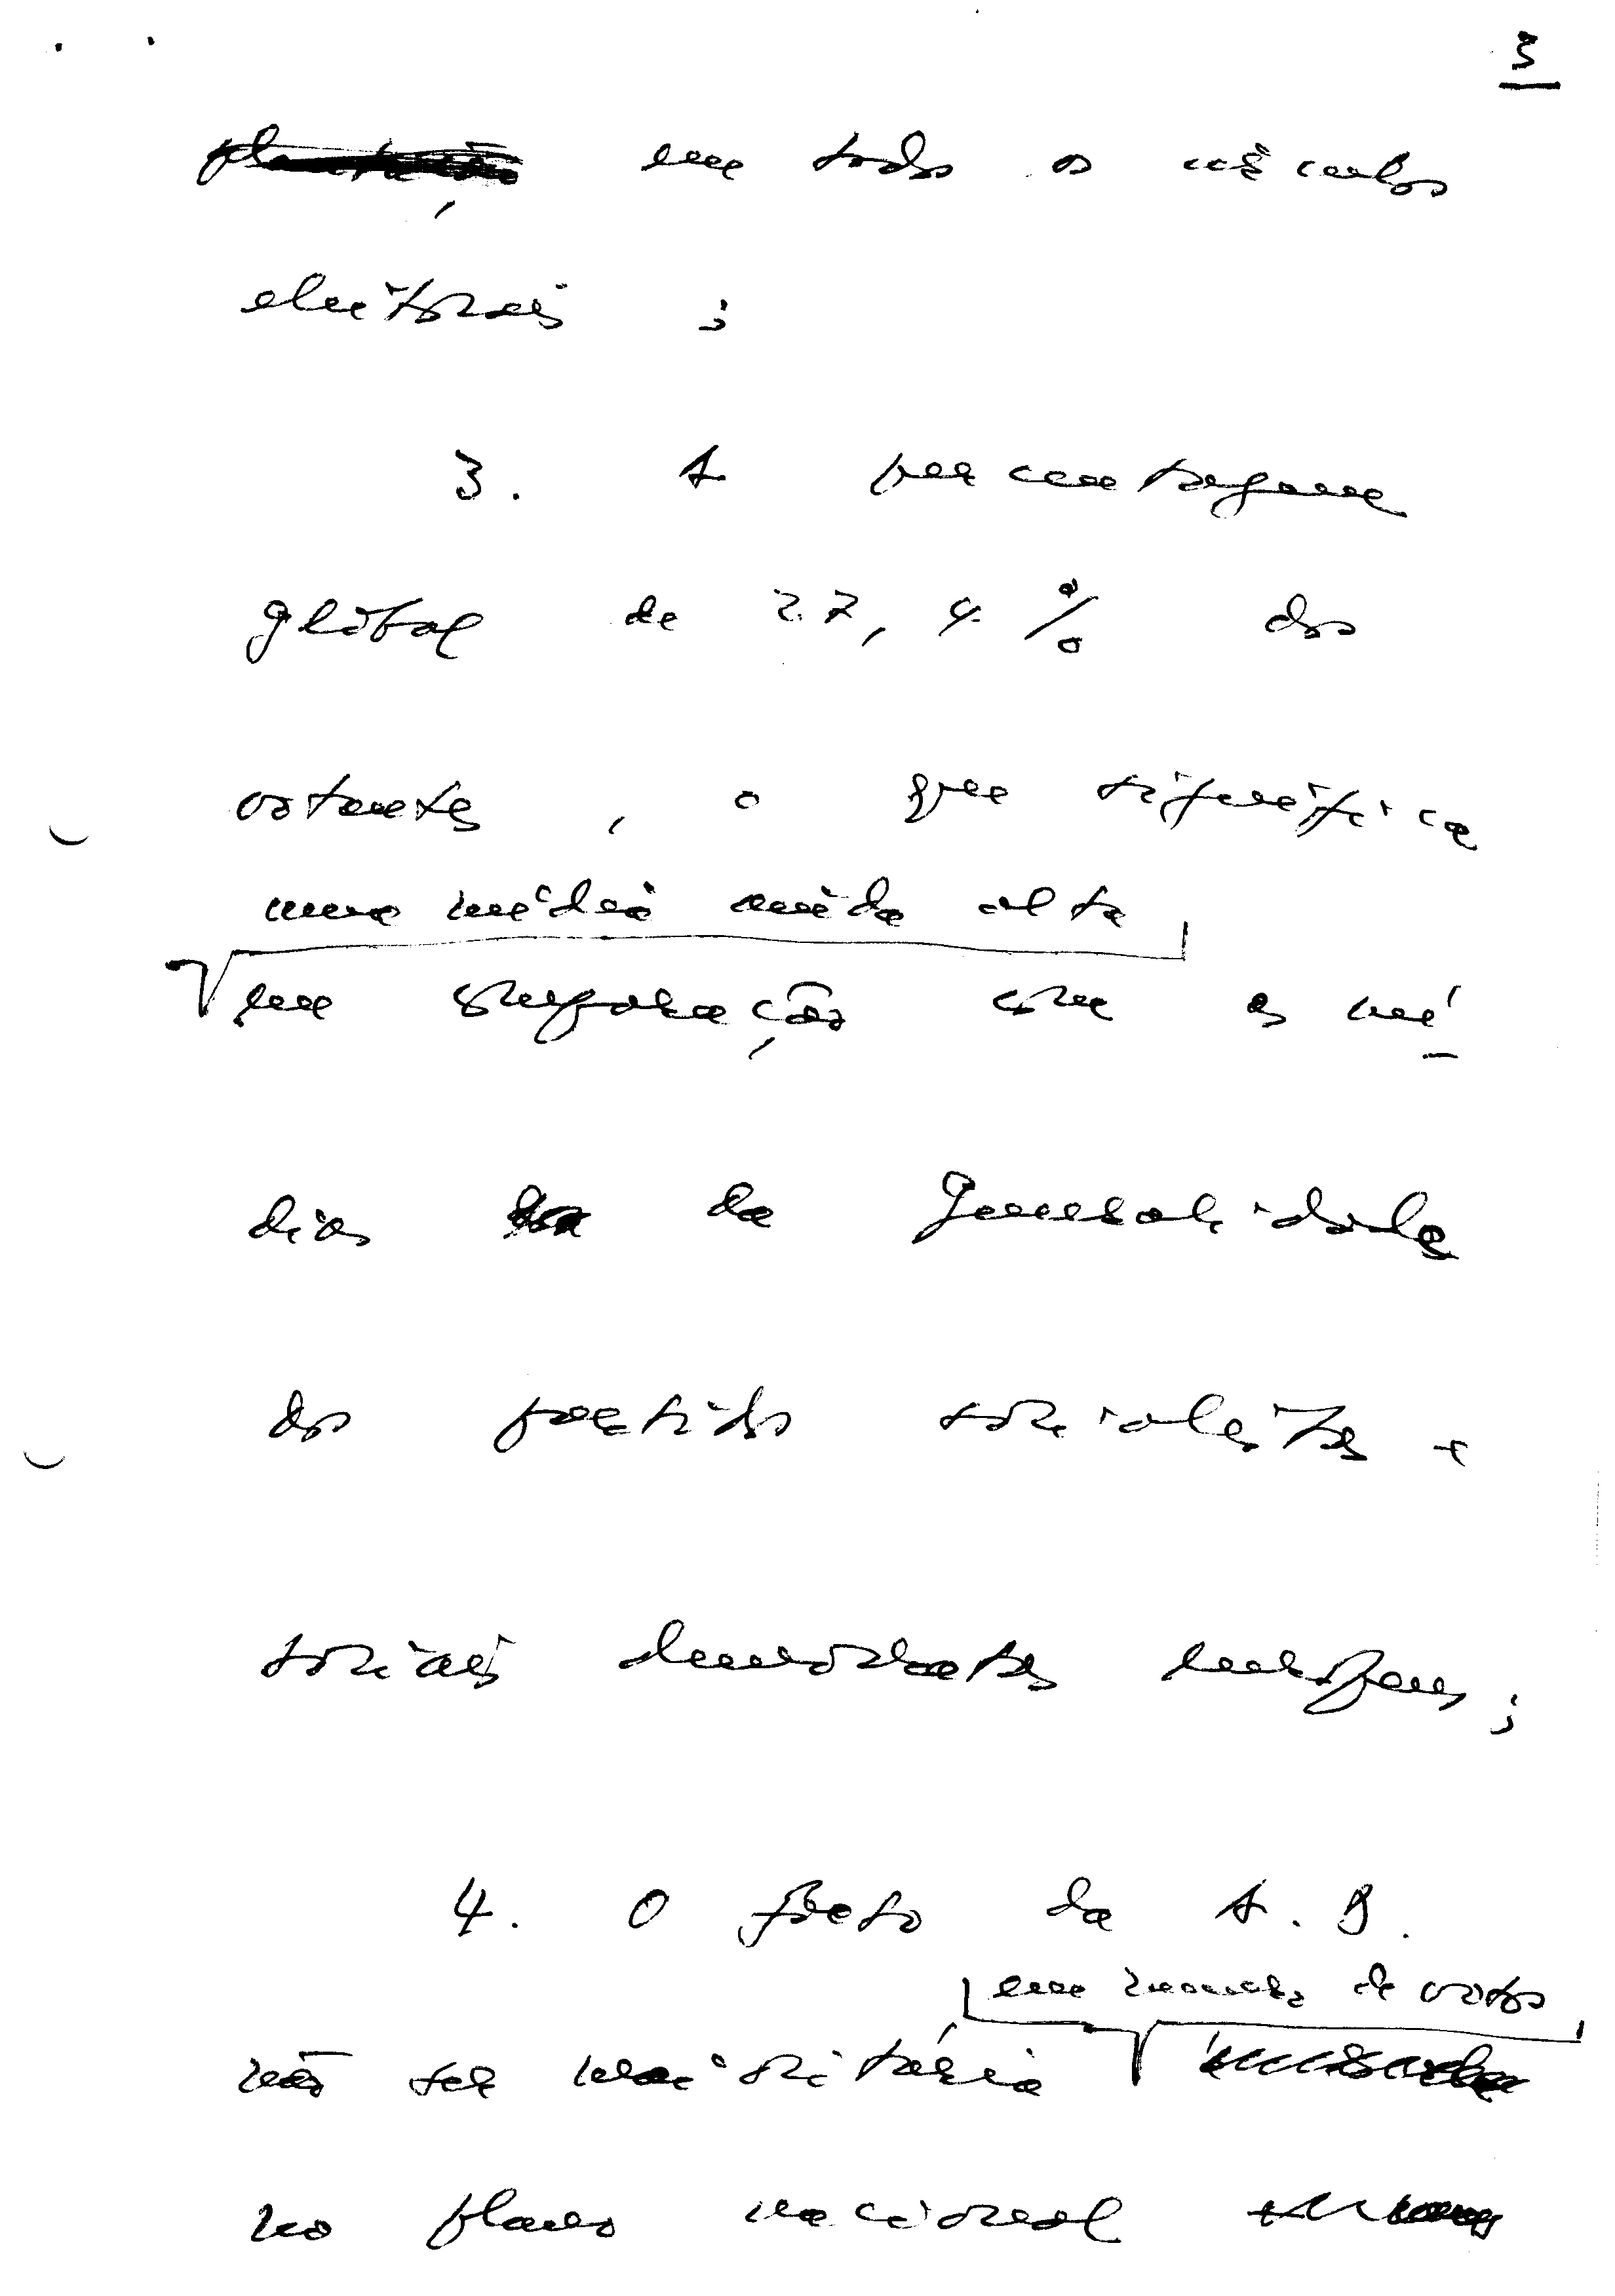 3
em todos os círculos
eleitorais ;
3. A percentagem
global de 27,4 % dos
votantes , o que significa
uma média ainda alta
em comparação com as mé-
dias da generalidade
dos partidos socialistas e
sociais democratas europeus ;
4. O facto da A. D.
em número de votos
não ser maioritária
no plano nacional